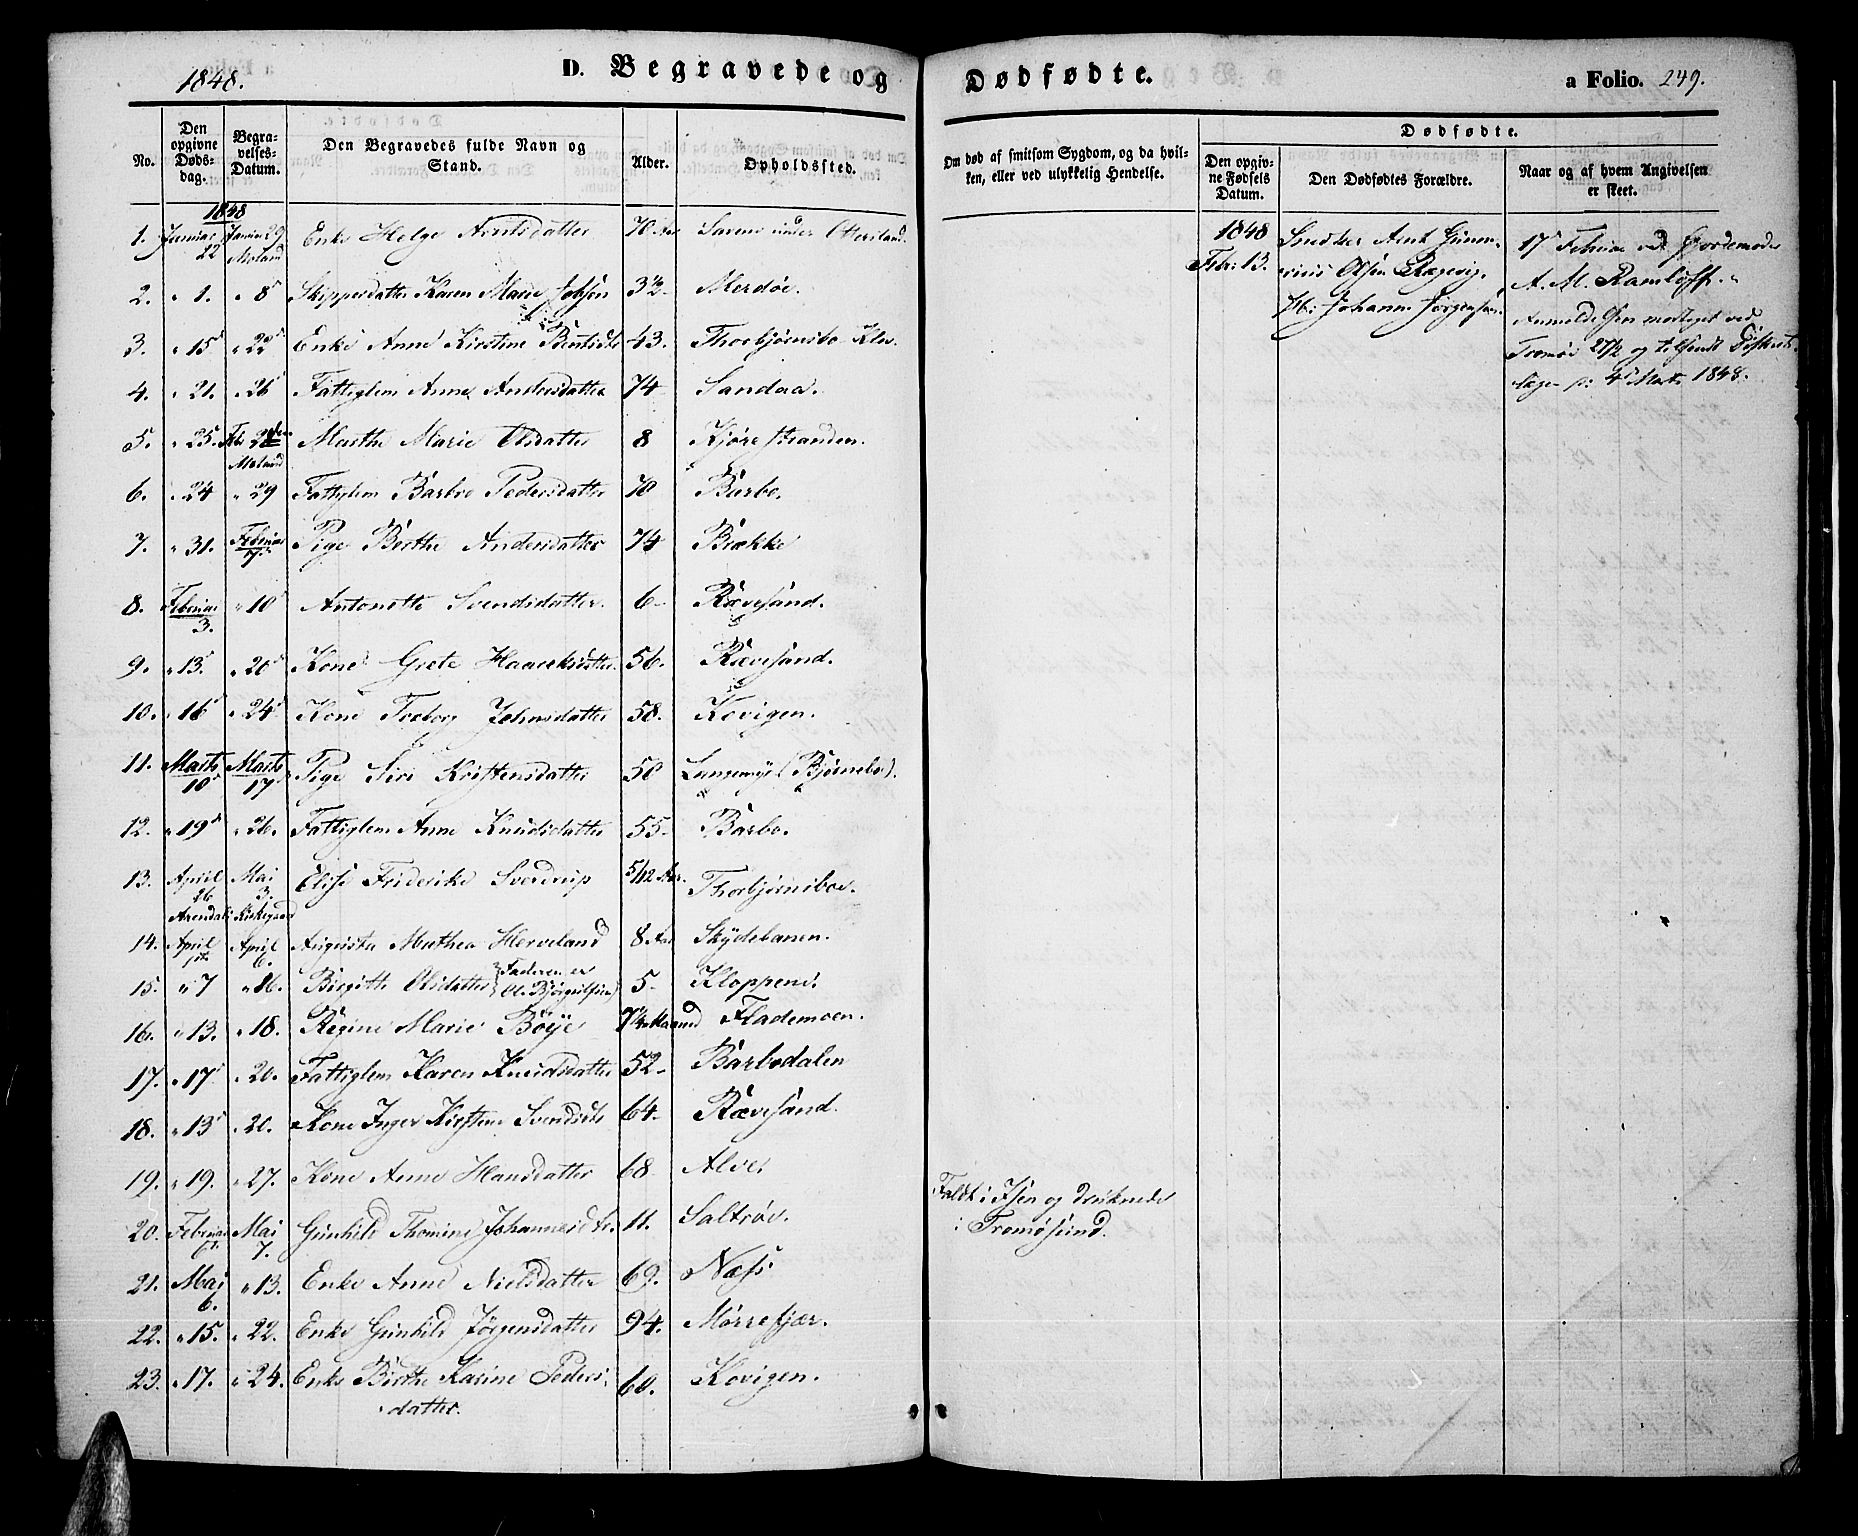 1848.
D. Begravede og Dødfødte.
a Folio. 249.
No.
Den opgivne Døds-dag.
Begra-velses-Datum.
Den Begravedes fulde Navn og Stand.
Alder.
Opholdssted.
Om død af smitsom Sygdom, og da hvil-
ken, eller ved ulykkelig Hendelse.
Dødfødte.
Den opgiv-ne Fødsels Datum.
Den Dødfødtes Forældre.
Naar og af hvem Angivelsen er skeet.
1848
1. Januar 22 Januar 29 Moland Enke Helge Arntsdatter 70 Aar under
2. " 1. " 8 Skippersdatter Karen Marie Jebsen 3½ Merdøe.
3. " 15 " 22 Enke Anne Kirstine 43. Thorbjørnsbo
4. " 21. " 26 Fattiglem Anne Andersdatter 74 Sandaa.
5. " 25. Febr Moland Marthe Marie Olsdatter 8 Kjørestranden.
6. " 24 " 29 Fattiglem Barbro Pedersdatter 70 Barbo.
7. " 31. Februar 7 Pige Berthe Andersdatter 74 Brække
8. Februar 3. " 10 Antonette Svendsdatter. 6 Rævesand.
9. " 13 " 20 Kone Grete 56. Rævesand.
10. " 16 " 24 Kone Torborg Johnsdatter 58. Kovigen.
11. Marts 10 Marts 17. Pige Siri Kristensdatter 50 Langemyr (Bjørnebo).
12. " 19 " 26. Fattiglem Anne Knudsdatter 55 Barbo.
13. April 26 Mai 3. Arendals Kirkegaard Elise Friderike Sverdrup 5/12 Aar. Thorbjørnsboe.
14. April April 6. Augusta Mathea Herveland 8 Aar Skydebanen.
15. " 7 " 16. Birgitte Olsdatter (Faderen er 5 Kloppene.
16. " 13. " 18. Regine Marie Bøye Maaned Flademoen.
17. " 17 " 20. Fattiglem Karen Knudsdatter 52 Barbodalen
18. " 13 " 20. Kone Inger Kirstine 64 Rævesand.
19. " 19. " 27. Kone Anne Hansdatter 68 Alve.
20. Februar Mai 7. Gunhild Thomine 11. Saltrøe. Faldt i Isen og druknede
i Tromøsund.
21. Mai 6. " 13. Enke Anne Nielsdatter 69. Næss
22. " 15. " 22. Enke Gunhild Jørgensdatter 94. Mørrefjær.
23. " 17. " 24. Enke Berthe Karine Peders- 60. Kovigen.
datter.
1848 Febr: 13. Snedker Arnt Olsen Rægevig. H: Johanne Jørgensen.
17 Februar ved Jordemoder
A. M. Ramløff.
Anmeldelsen modtaget ved
Tromøe 27/2 og tilsendt
4 Marts 1848.